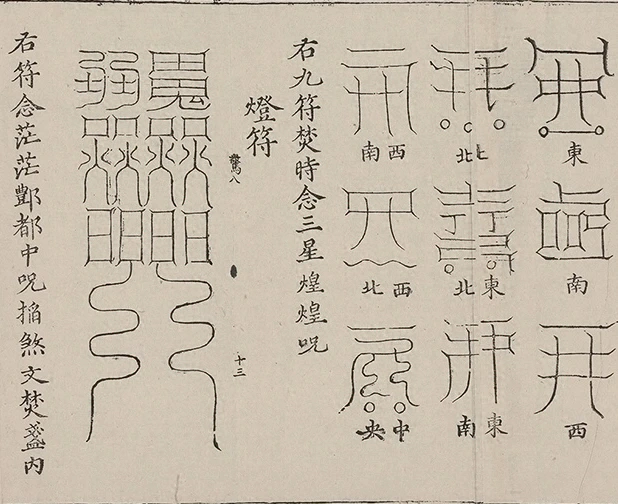 東
南
西
北
東北
東南
西南
西北
中央
右九符焚時念三星煌煌呪
燈符
驚八
十三
右符念茫茫酆都中呪搯煞文焚盞内